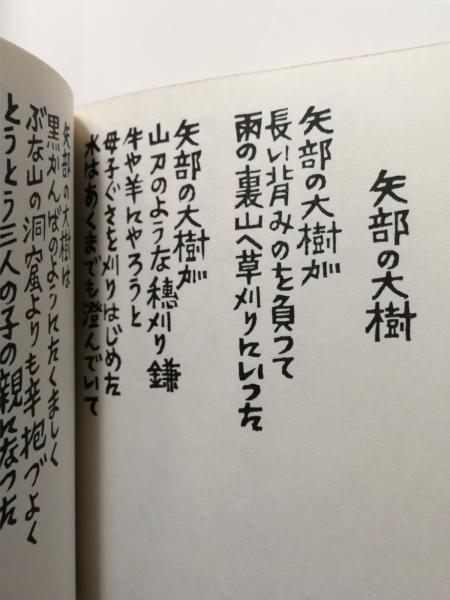 矢部の大樹
矢部の大樹が
長い背みのを負って
雨の裏山へ草刈りにいった
矢部の大樹が
山刀のような穂刈り鎌
牛や羊にやろうと
母子ぐさを刈りはじめた
水はあくまでも澄んでいて
矢部の大樹は
黒かんばのようにたくましく
ぶな山の洞窟よりも辛抱づよく
とうとう三人の子の親になった